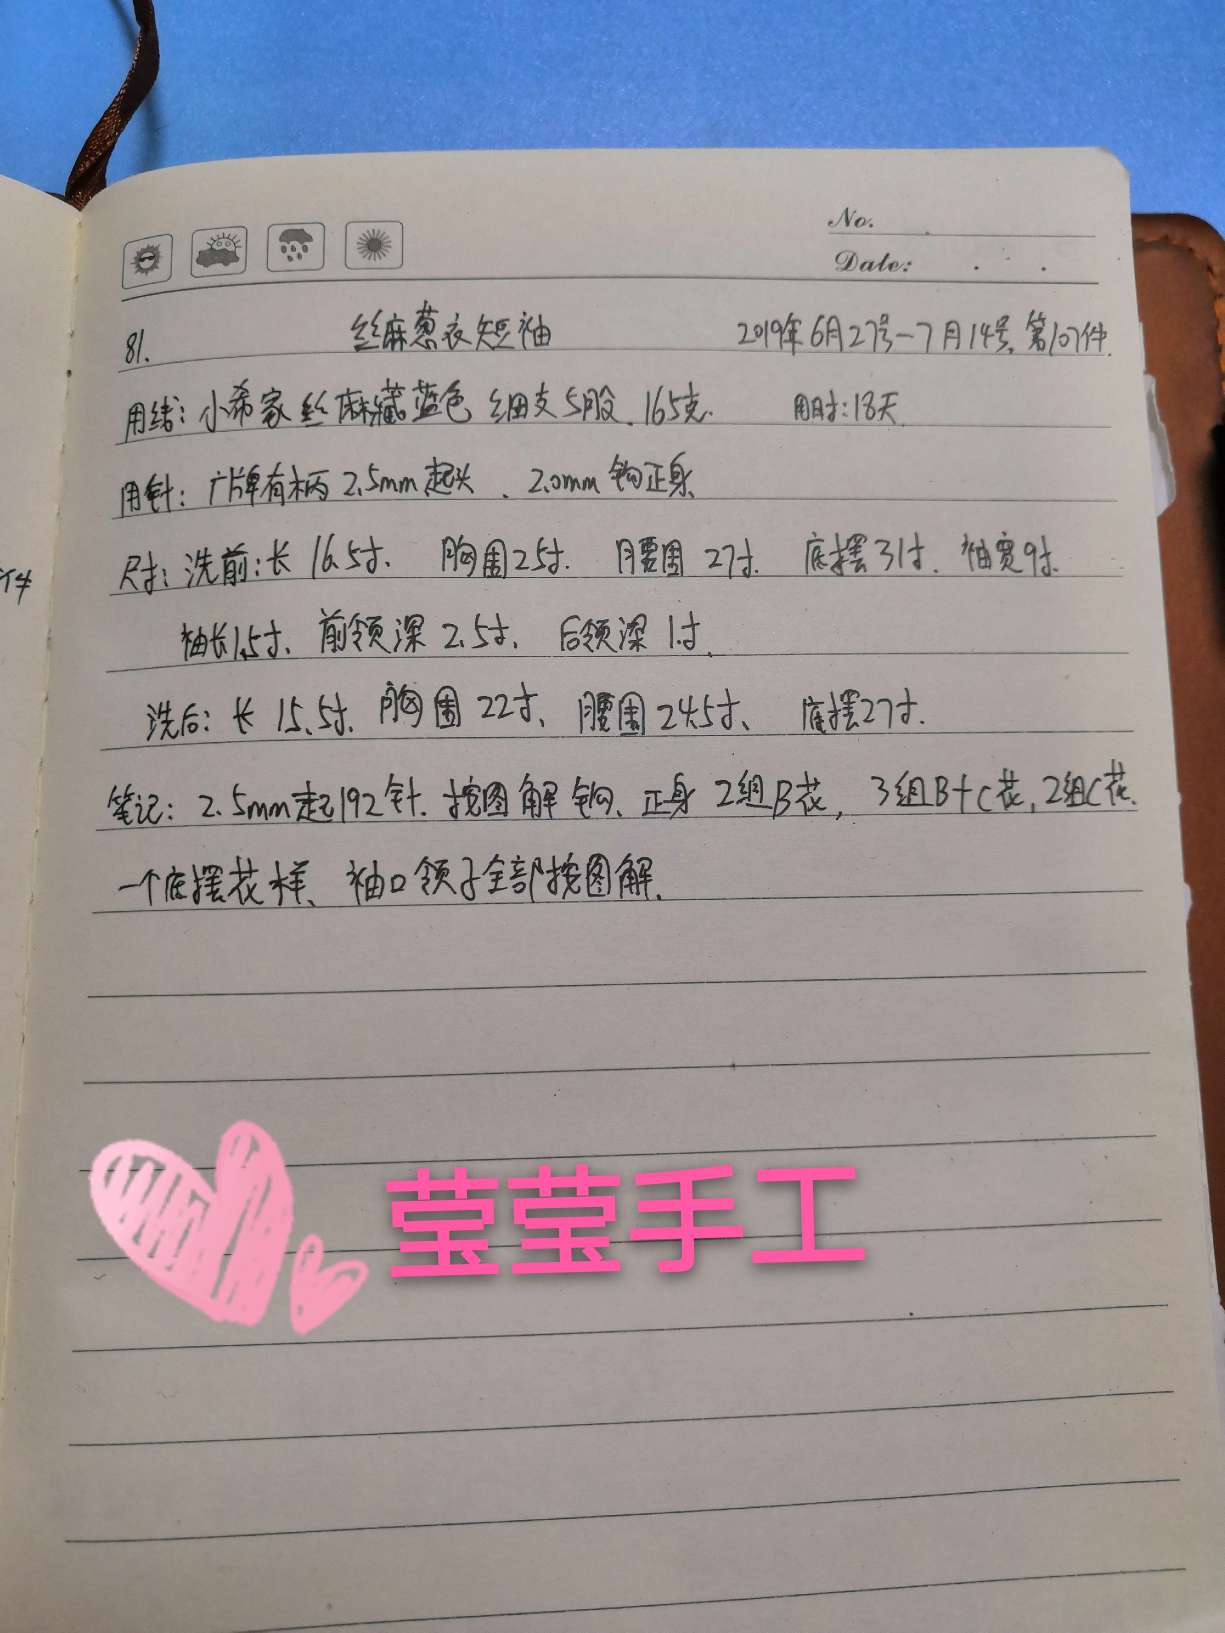 No.
Date:
81. 丝麻葱衣短袖 2019年6月27号-7月14号、第107件.
用线: 小希家丝麻藏蓝色 细支5股、165克. 用时:18天
用针: 广牌有柄2.5mm起头、2.0mm钩正身
尺寸: 洗前:长16.5寸. 胸围25寸. 腰围27寸. 底摆31寸. 袖宽9寸.
件
袖长1.5寸、前领深2.5寸、后领深1寸.
洗后: 长15.5寸、胸围22寸、腰围24.5寸、底摆27寸.
笔记: 2.5mm起192针. 按图解钩、正身2组B花, 3组B+C花, 2组C花.
一个底摆花样、袖口领子全部按图解.
莹莹手工